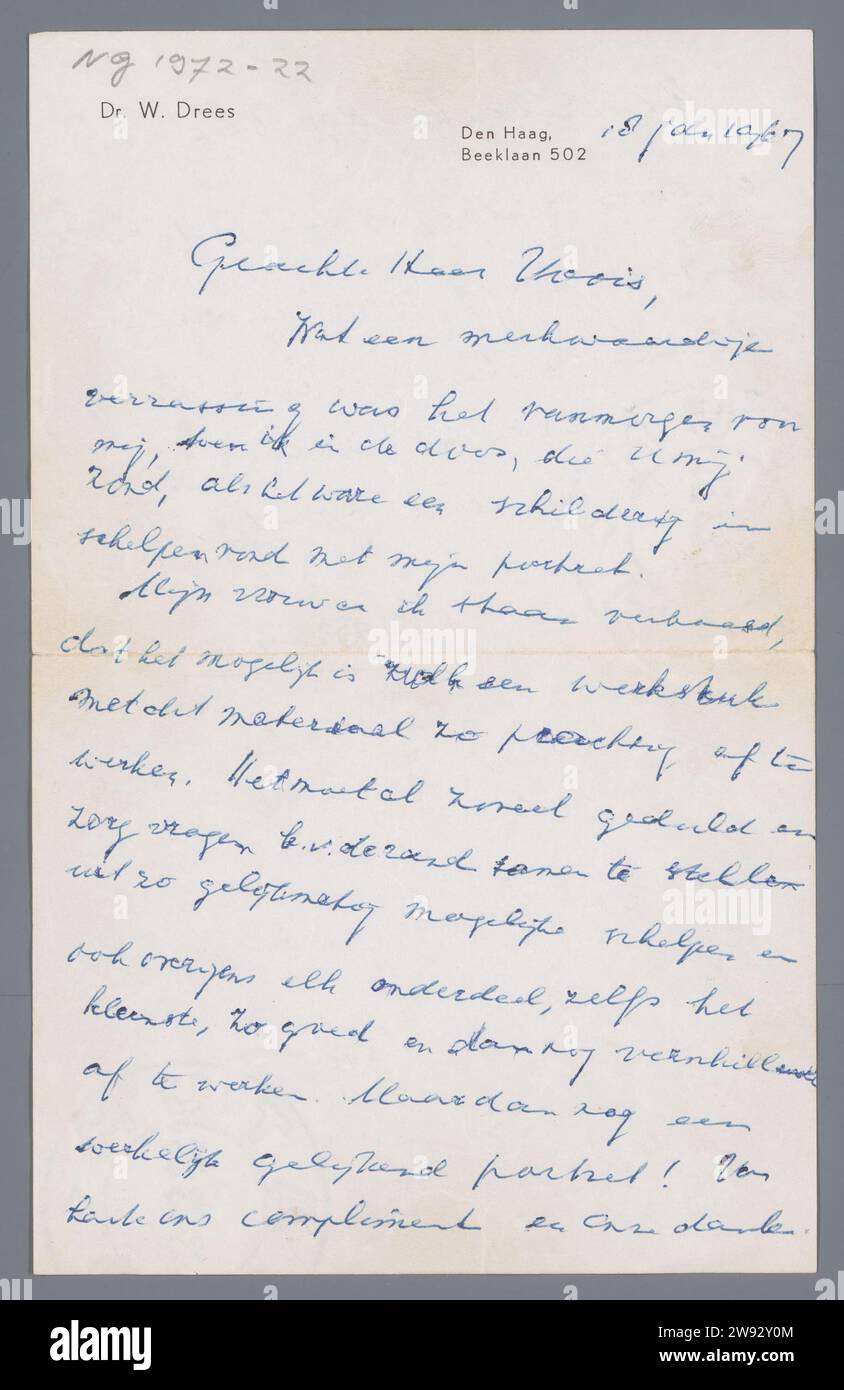 NG 1972-22
Dr. W. Drees
Den Haag, 18 jan 1967
Beeklaan 502
Geachte Heer Koois,
Wat een merkwaardige
verrassing was het vanmorgen voor
mij, toen ik in de doos, die U mij
zond, als het ware een schilderij in
schelpen vond met mijn portret.
Mijn vrouw en ik staan verbaasd,
dat het mogelijk is zulk een werkstuk
met dit materiaal zo prachtig af te
werken. Het moet al zoveel geduld en
zorg vragen b.v. de rand samen te stellen
uit zo gelijkmatig mogelijke schelpen en
ook overigens elk onderdeel, zelfs het
kleinste, zo goed en dan nog verschillend
af te werken. Maar dan nog een
werkelijk gelijkend portret! Van
harte ons compliment en onze dank.
alamy
alamy
Image ID: 2W92Y0M
www.alamy.com